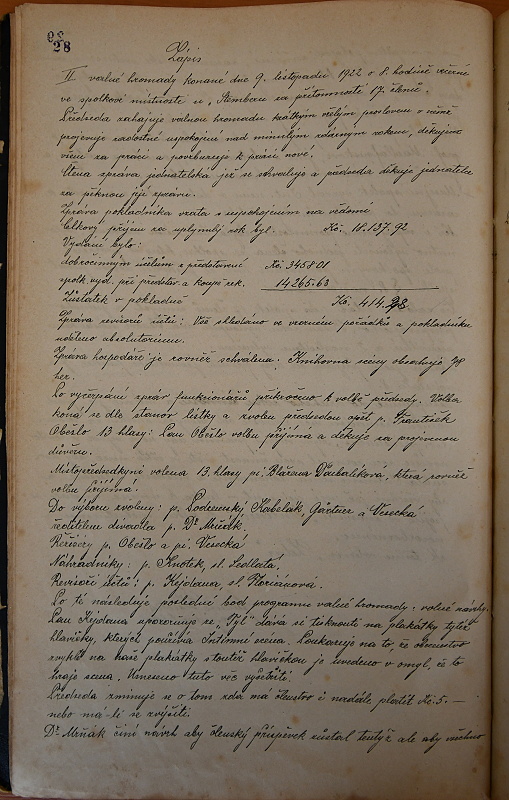 28
Zápis
II. valné hromady konané dne 9. listopadu 1922 o 8. hodině večerní
ve spolkové místnosti u za přítomnosti 17. členů.
Předseda zahajuje valnou hromadu krátkým vřelým proslovem v němž
projevuje radostné uspokojení nad minulým zdárným rokem, děkujíce
všem za práci a povzbuzuje k práci nové.
Čtena zpráva jednatelská jež se schvaluje a předseda děkuje jednateli
za pěknou její zprávu.
Zpráva pokladníka vzata s uspokojením na vědomí
Celkový příjem za uplynulý rok byl: Kč: 18.137.92
Vydání bylo:
dobročinným účelům z představení Kč: 3458 01
spolk. vyd. při představ. a koupi rek. 14265.63
Zůstatek v pokladně Kč 414.28.
Zpráva revisorů účtů: Vše shledáno ve vzorném pořádku a pokladníku
uděleno absolutorium.
Zpráva hospodáře je rovněž schválena. Knihovna scény obsahuje 78
her.
Po vyčerpání zpráv funkcionářů přikročeno k volbě předsedy. Volba
koná se dle stanov lístky a zvolen předsedou opět p. František
Obešlo 13 hlasy: Pan Obešlo volbu přijímá a děkuje za projevenou
důvěru.
Místopředsedkyní volena 13. hlasy pí. Blažena Doubalíková, která rovněž
volbu přijímá.
Do výboru zvoleny: p. Podzemský Kabelák, Gärtner a Vesecká
ředitelem divadla p. Dr. Mrňák.
Režiséry p. Obešlo a pí. Vesecká
Náhradníky: p. Knotek, sl. Sedlatá,
Revisoři účtů: p. Kejdana, sl. Floriánová.
Po té následuje poslední bod programu valné hromady: volné návrhy.
Pan Kejdana upozorňuje se "Tyl" dává si tisknouti na plakáty tytéž
hlavičky, kterýž používá Intimní scena. Poukazuje na to, že obecenstvo
zvyklé na naše plakátky s toutéž hlavičkou je uvedeno v omyl, že to
hraje scena. Usneseno tuto věc vyšetřiti.
Předseda zmiňuje se o tom zda má členstvo i nadále platit Kč 5.—
nebo má-li se zvýšiti.
Dr. Mrňák činí návrh aby členský příspěvek zůstal tentýž ale aby všichni